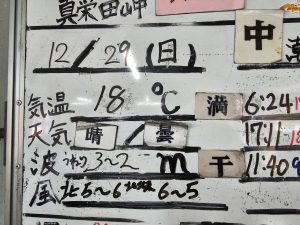 真栄田岬
中
12/29(日)
気温 18℃ 満 6:24
天気 晴/曇 17:11
波 うねり3~2m 干 11:40
風 北5~6 6~5